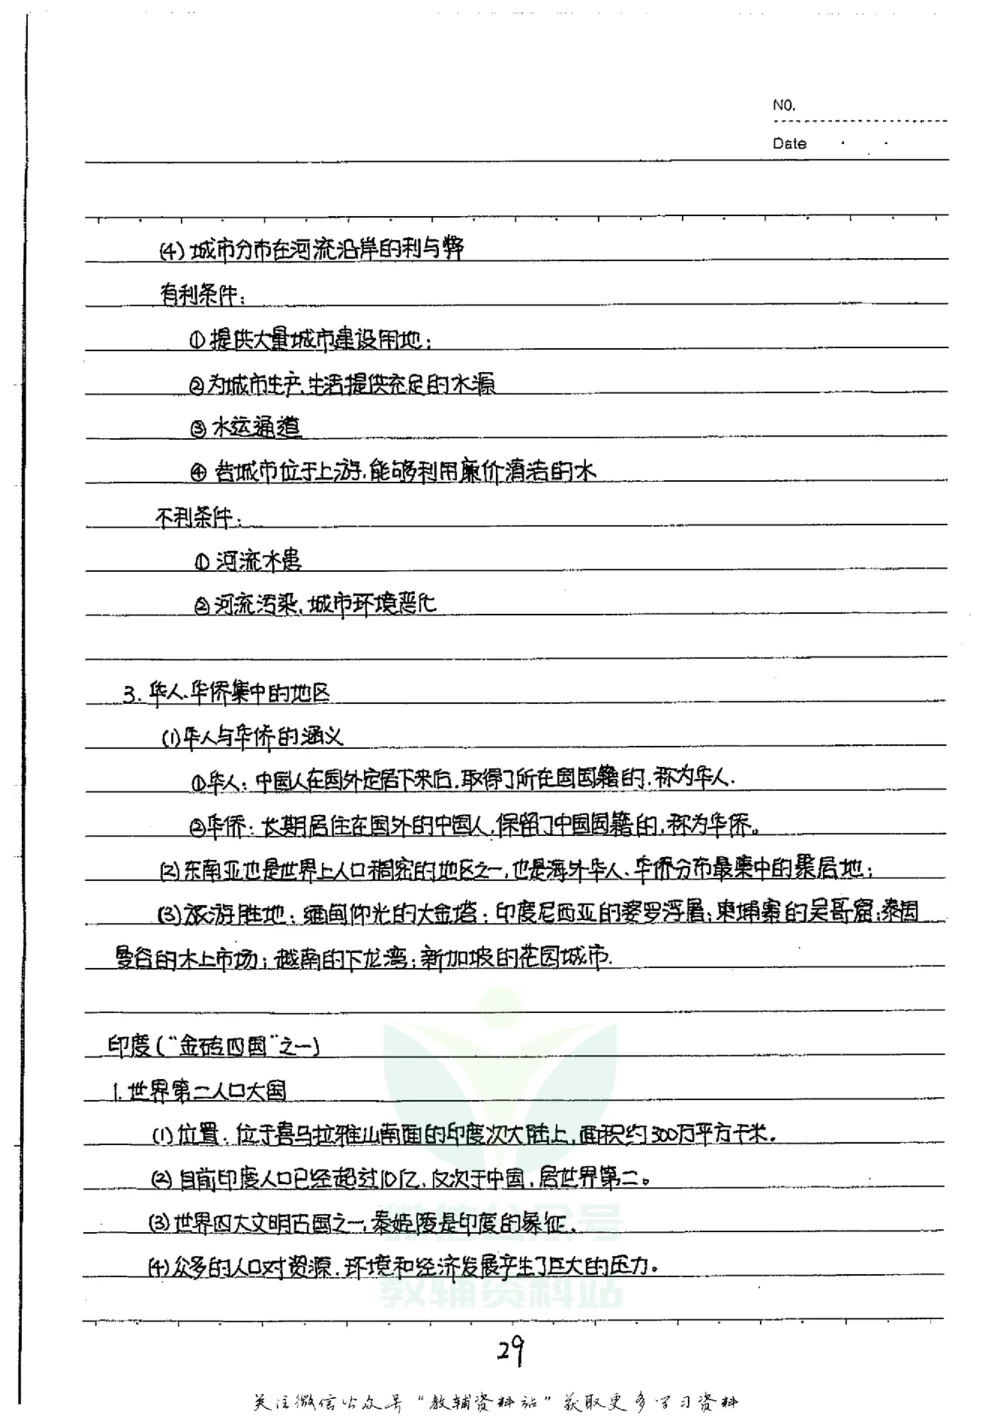 NO.
Date
(4)城市分布在河流沿岸的利与弊
有利条件:
①提供大量城市建设用地;
②为城市生产.生活提供充足的水源
③水运通道
④各城市位于上游,能够利用廉价清洁的水
不利条件:
①河流水患
②河流污染,城市环境恶化
3.华人.华侨集中的地区
(1)华人与华侨的涵义
①华人:中国人在国外定居下来后,取得了所在国国籍的,称为华人.
②华侨:长期居住在国外的中国人,保留了中国国籍的,称为华侨。
(2)东南亚也是世界上人口稠密的地区之一,也是海外华人、华侨分布最集中的聚居地;
(3)旅游胜地:缅甸仰光的大金塔;印度尼西亚的婆罗浮屠;柬埔寨的吴哥窟;泰国
曼谷的水上市场;越南的下龙湾;新加坡的花园城市.
印度(“金砖四国”之一)
1.世界第二人口大国
(1)位置:位于喜马拉雅山南面的印度次大陆上,面积约300万平方千米.
(2)目前印度人口已经超过10亿,仅次于中国,居世界第二。
(3)世界四大文明古国之一,泰姬陵是印度的象征.
(4)众多的人口对资源.环境和经济发展产生了巨大的压力。
微信公众号
教辅资料站
29
关注微信公众号“教辅资料站”获取更多学习资料